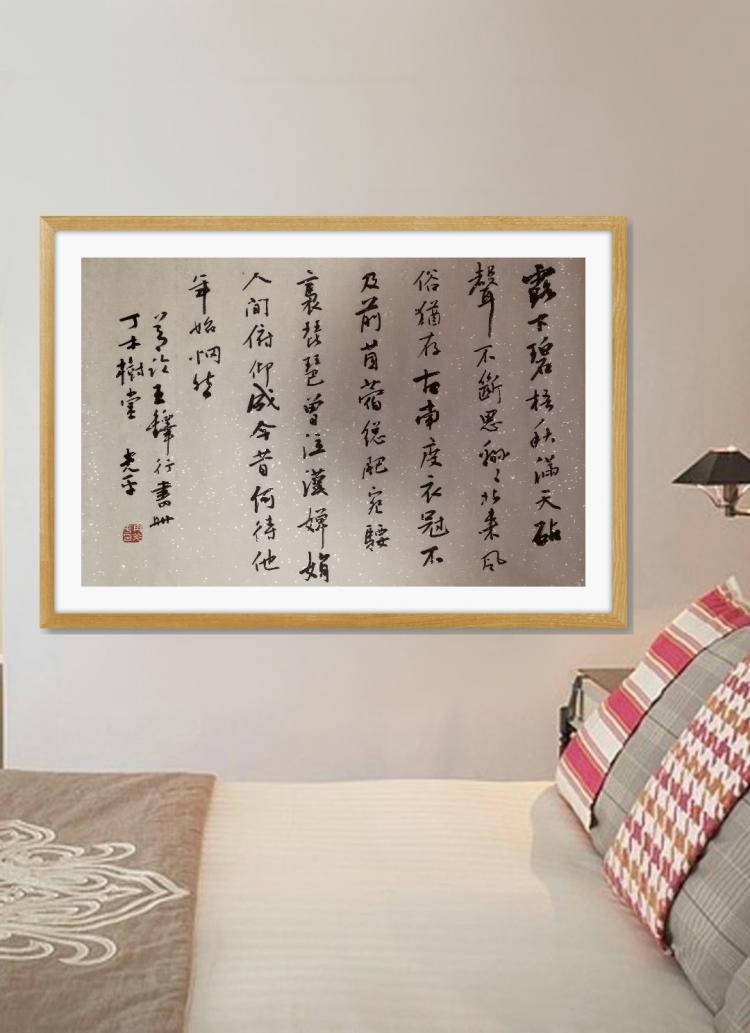 露下碧梧秋滿天砧
聲不斷思綿綿北來風
俗猶存古南度衣冠不
及前苜蓿總肥宛騕
褭琵琶曾泣漢嬋娟
人間俯仰成今昔何待他
年始惘然
王鐸行書冊
樹堂